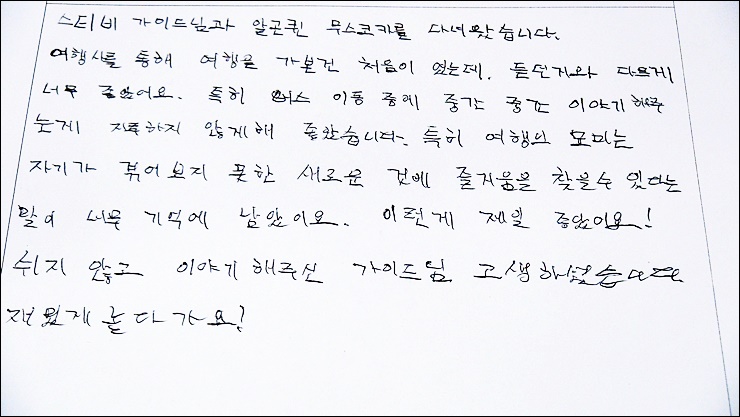 스티비 가이드님과 알곤퀸 무스코카를 다녀왔습니다.
여행사를 통해 여행을 가본건 처음이었는데, 듣던거와 다르게
너무 좋았어요. 특히 버스 이동 중에 중간 중간 이야기 해주
는게 지루하지 않게해 좋았습니다. 특히 여행의 묘미는
자기가 겪어보지 못한 새로운 것에 즐거움을 찾을수 있다는
말이 너무 기억에 남았어요. 이런게 제일 좋았어요!
쉬지 않고 이야기해주신 가이드님 고생하셨습니다
재밌게 놀다가요!